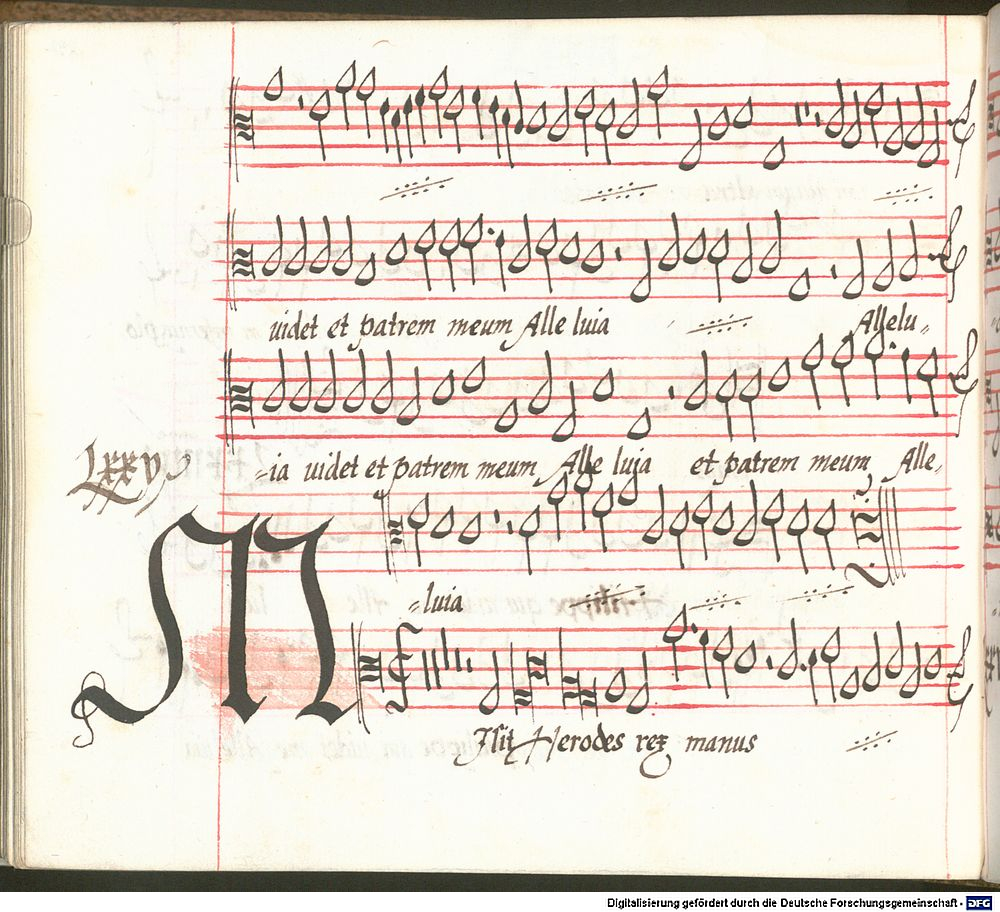 uidet et patrem meum Alle luia Allelu„
Lxxv
-ia uidet et patrem meum Alle luia et patrem meum Alle„
-luia
M Isit Herodes rex manus
Digitalisierung gefördert durch die Deutsche Forschungsgemeinschaft - DFG